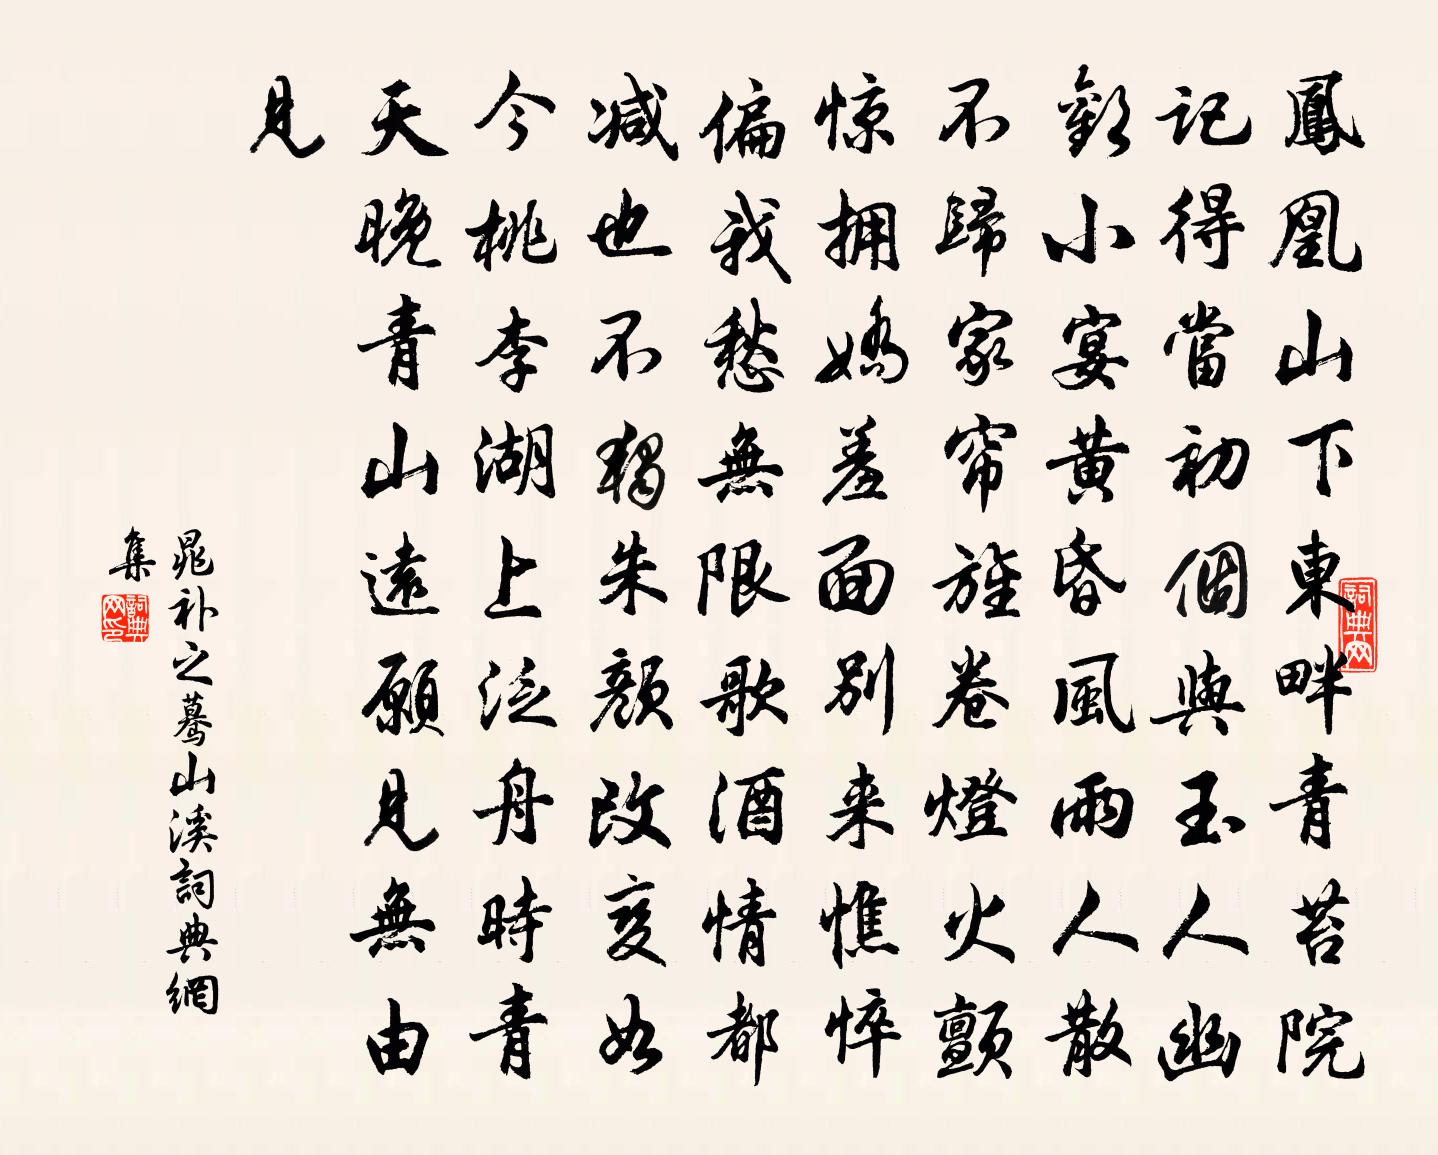 鳳凰山下東畔青苔院
記得當初個與玉人幽
歡小宴黃昏風雨人散
不歸家帘旌卷燈火顫
惊拥嬌羞面别来憔悴
偏我愁無限歌酒情都
减也不獨朱顔改变如
今桃李湖上泛舟時青
天晚青山遠願見無由
見
晁补之驀山溪詞典網
集
詞典网
詞典网印